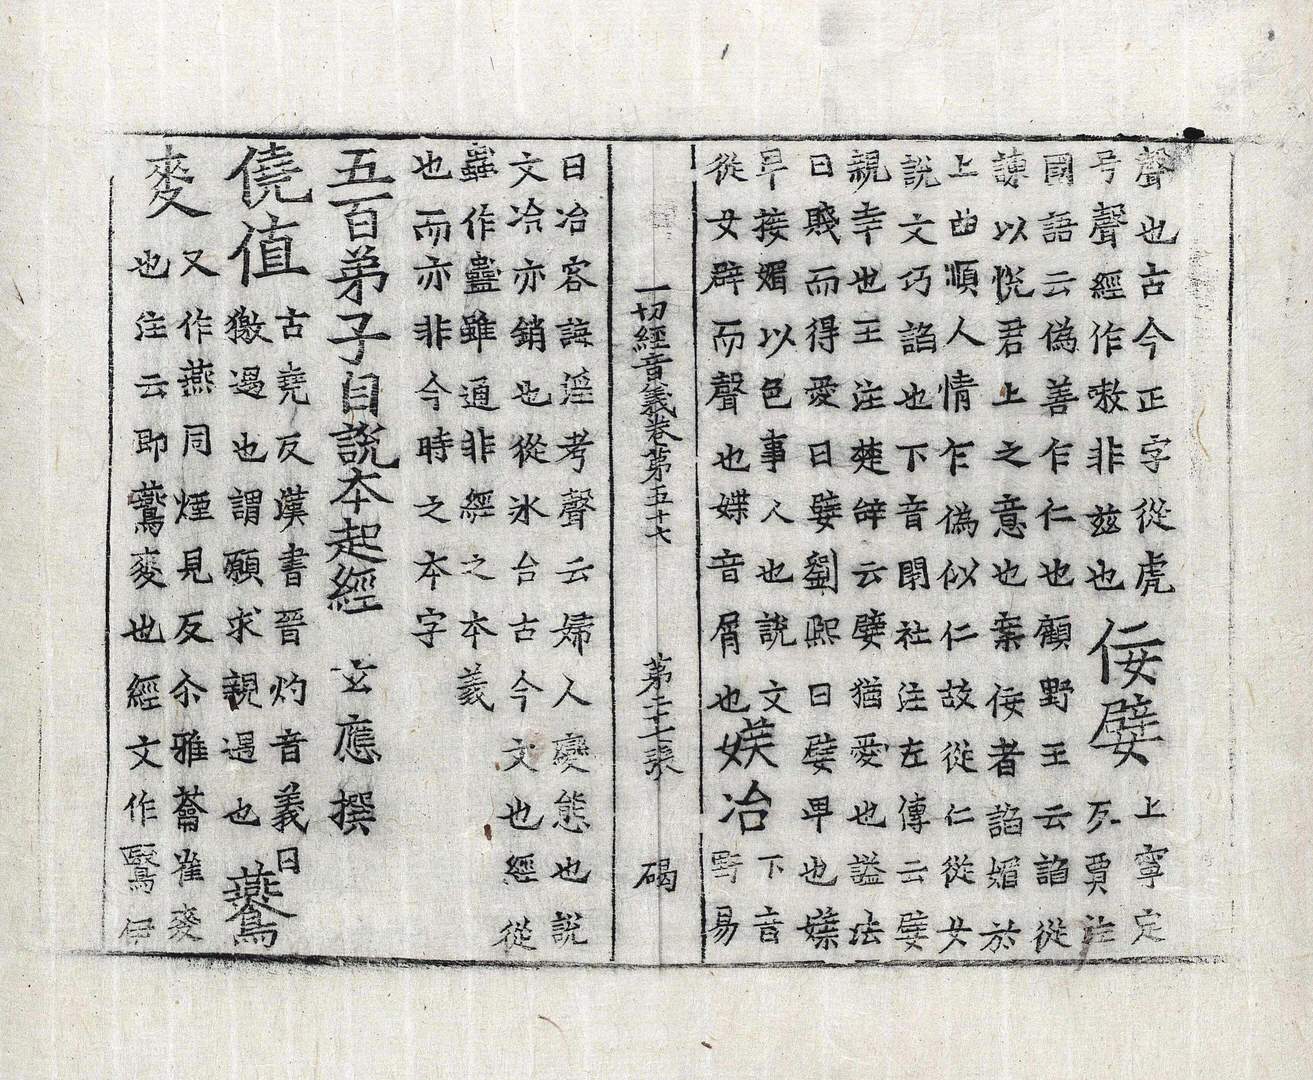 聲也古今正字從虎
号聲經作嗷非兹也
佞嬖
上寧定
反賈注
國語云偽善乍仁也顧野王云諂從
諫以悅君上之意也案佞者諂媚於
上曲順人情乍偽似仁故從仁從女
說文巧諂也下音閉社注左傳云嬖
親幸也王注楚辞云嬖猶愛也謚法
曰賤而得愛曰嬖劉熙曰嬖卑也媟
卑接媚以色事人也說文
從女辟而聲也媟音屑也
媄冶
下音
野易
一切經音義卷第五十六 第二十七張 碣
曰冶容誨淫考聲云婦人變態也說
文冶亦銷也從氷台古今文也經從
作蠱雖通非經之本義
也而亦非今時之本字
五百弟子自說本起經 玄應撰
僥值
古堯反漢書晉灼音義曰
徼遇也謂願求親遇也
鷰
麥
又作燕同煙見反尒雅蘥雀麥
也注云即鷰麥也經文作鷖伊